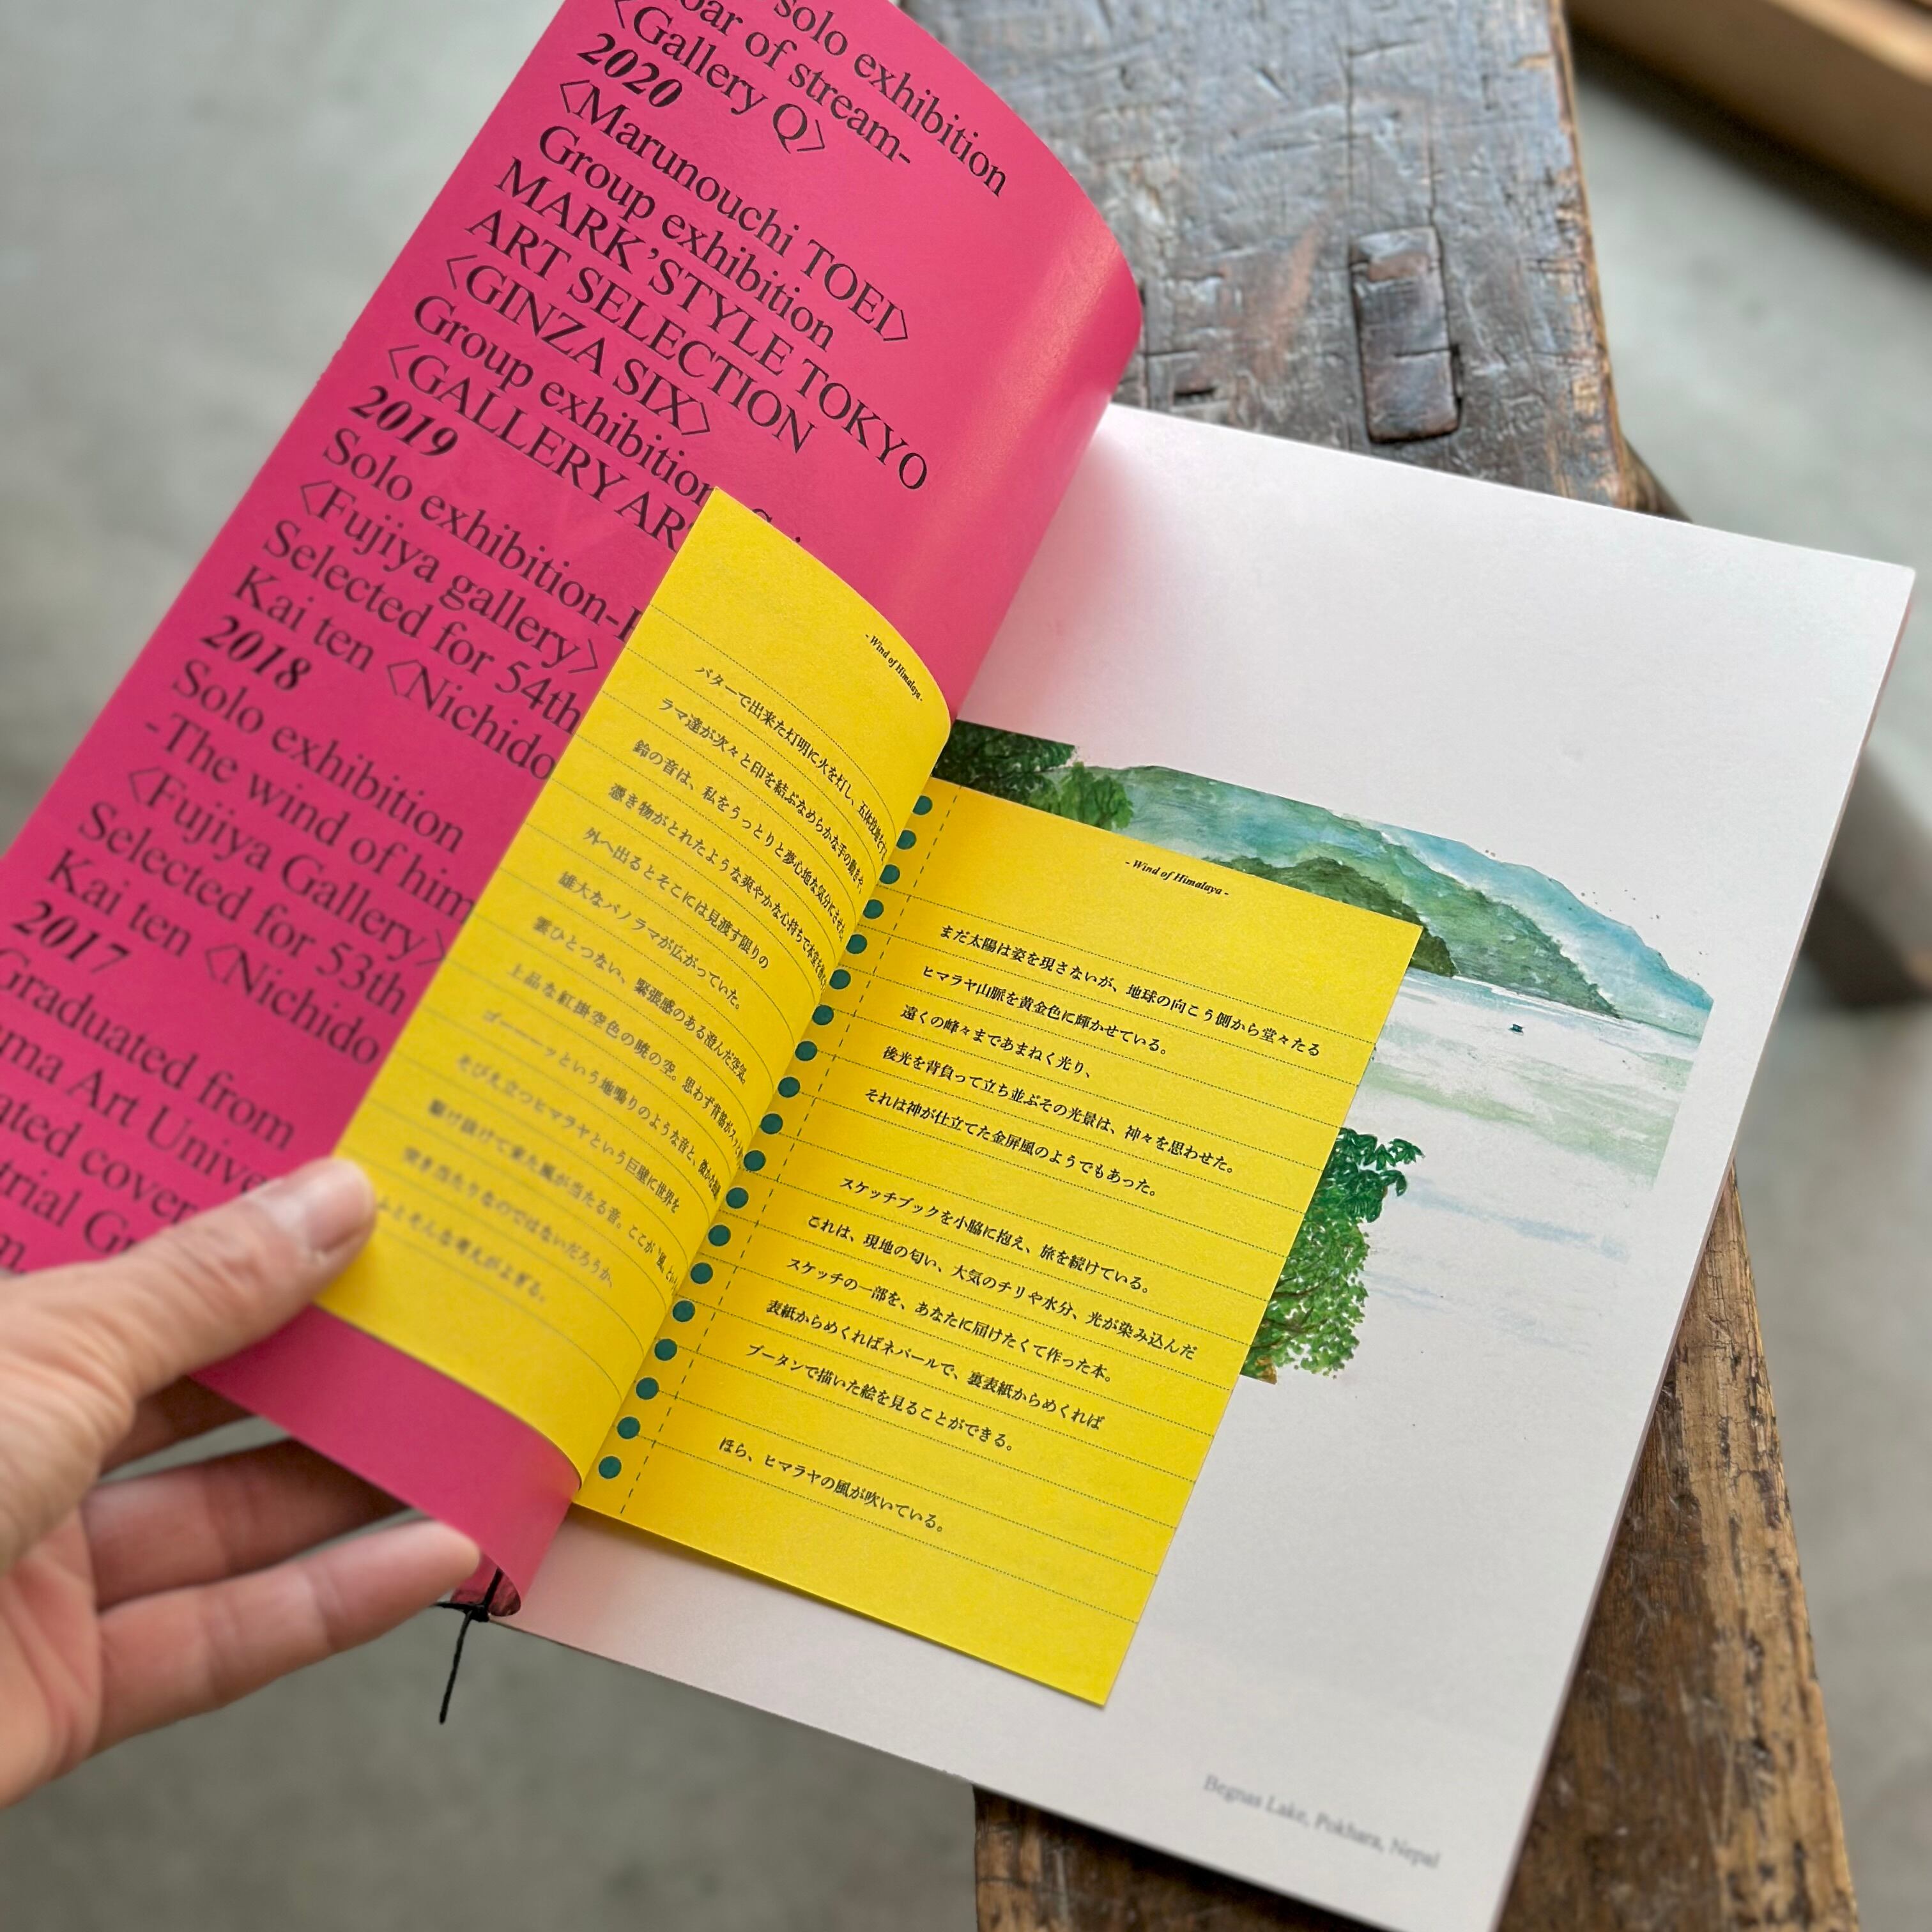 solo exhibition
oar of stream-
〈Gallery Q〉
2020
〈Marunouchi TOEI〉
Group exhibition
MARK'STYLE TOKYO
ART SELECTION
〈GINZA SIX〉
Group exhibition
〈GALLERY AR
2019
Solo exhibition-
〈Fujiya gallery〉
Selected for 54th
Kai ten 〈Nichido
2018
Solo exhibition
-The wind of him
〈Fujiya Gallery〉
Selected for 53th
Kai ten 〈Nichido
2017
Graduated from
ma Art Unive
ated cover
trial Gr
- Wind of Himalaya -
バターで出来た灯明に火を灯し、五体投地を
ラマ達が次々と印を結ぶなめらかな手の動きや、
鈴の音は、私をうっとりと夢心地な気分にさせた。
憑き物がとれたような爽やかな心持ちで本堂を
外へ出るとそこには見渡す限りの
雄大なパノラマが広がっていた。
雲ひとつない、緊張感のある澄んだ空気。
上品な紅掛空色の暁の空。思わず背筋が
ゴーーーッという地鳴りのような音と、
そびえ立つヒマラヤという巨壁に世界を
駆け抜けて来た風が当たる音。ここが"風
突き当たりなのではないだろうか、
とそんな考えがよぎる。
- Wind of Himalaya -
まだ太陽は姿を現さないが、地球の向こう側から堂々たる
ヒマラヤ山脈を黄金色に輝かせている。
遠くの峰々まであまねく光り、
後光を背負って立ち並ぶその光景は、神々を思わせた。
それは神が仕立てた金屏風のようでもあった。
スケッチブックを小脇に抱え、旅を続けている。
これは、現地の匂い、大気のチリや水分、光が染み込んだ
スケッチの一部を、あなたに届けたくて作った本。
表紙からめくればネパールで、裏表紙からめくれば
ブータンで描いた絵を見ることができる。
ほら、ヒマラヤの風が吹いている。
Begnas Lake, Pokhara, Nepal